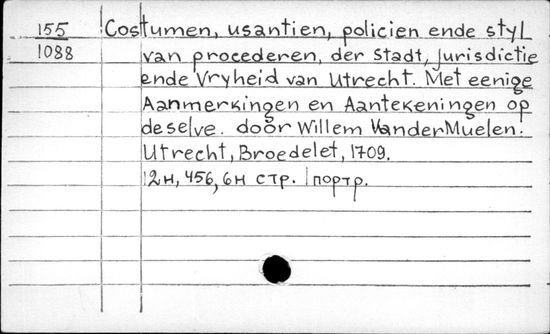 155 Costumen, usantien, policien ende styl
1088 van procederen, der Stadt, Jurisdictie
ende Vryheid van Utrecht. Met eenige
Aanmerkingen en Aantekeningen op
deselve. door Willem VanderMuelen.
Utrecht, Broedelet, 1709.
12н, 456, 6н стр. 1портр.